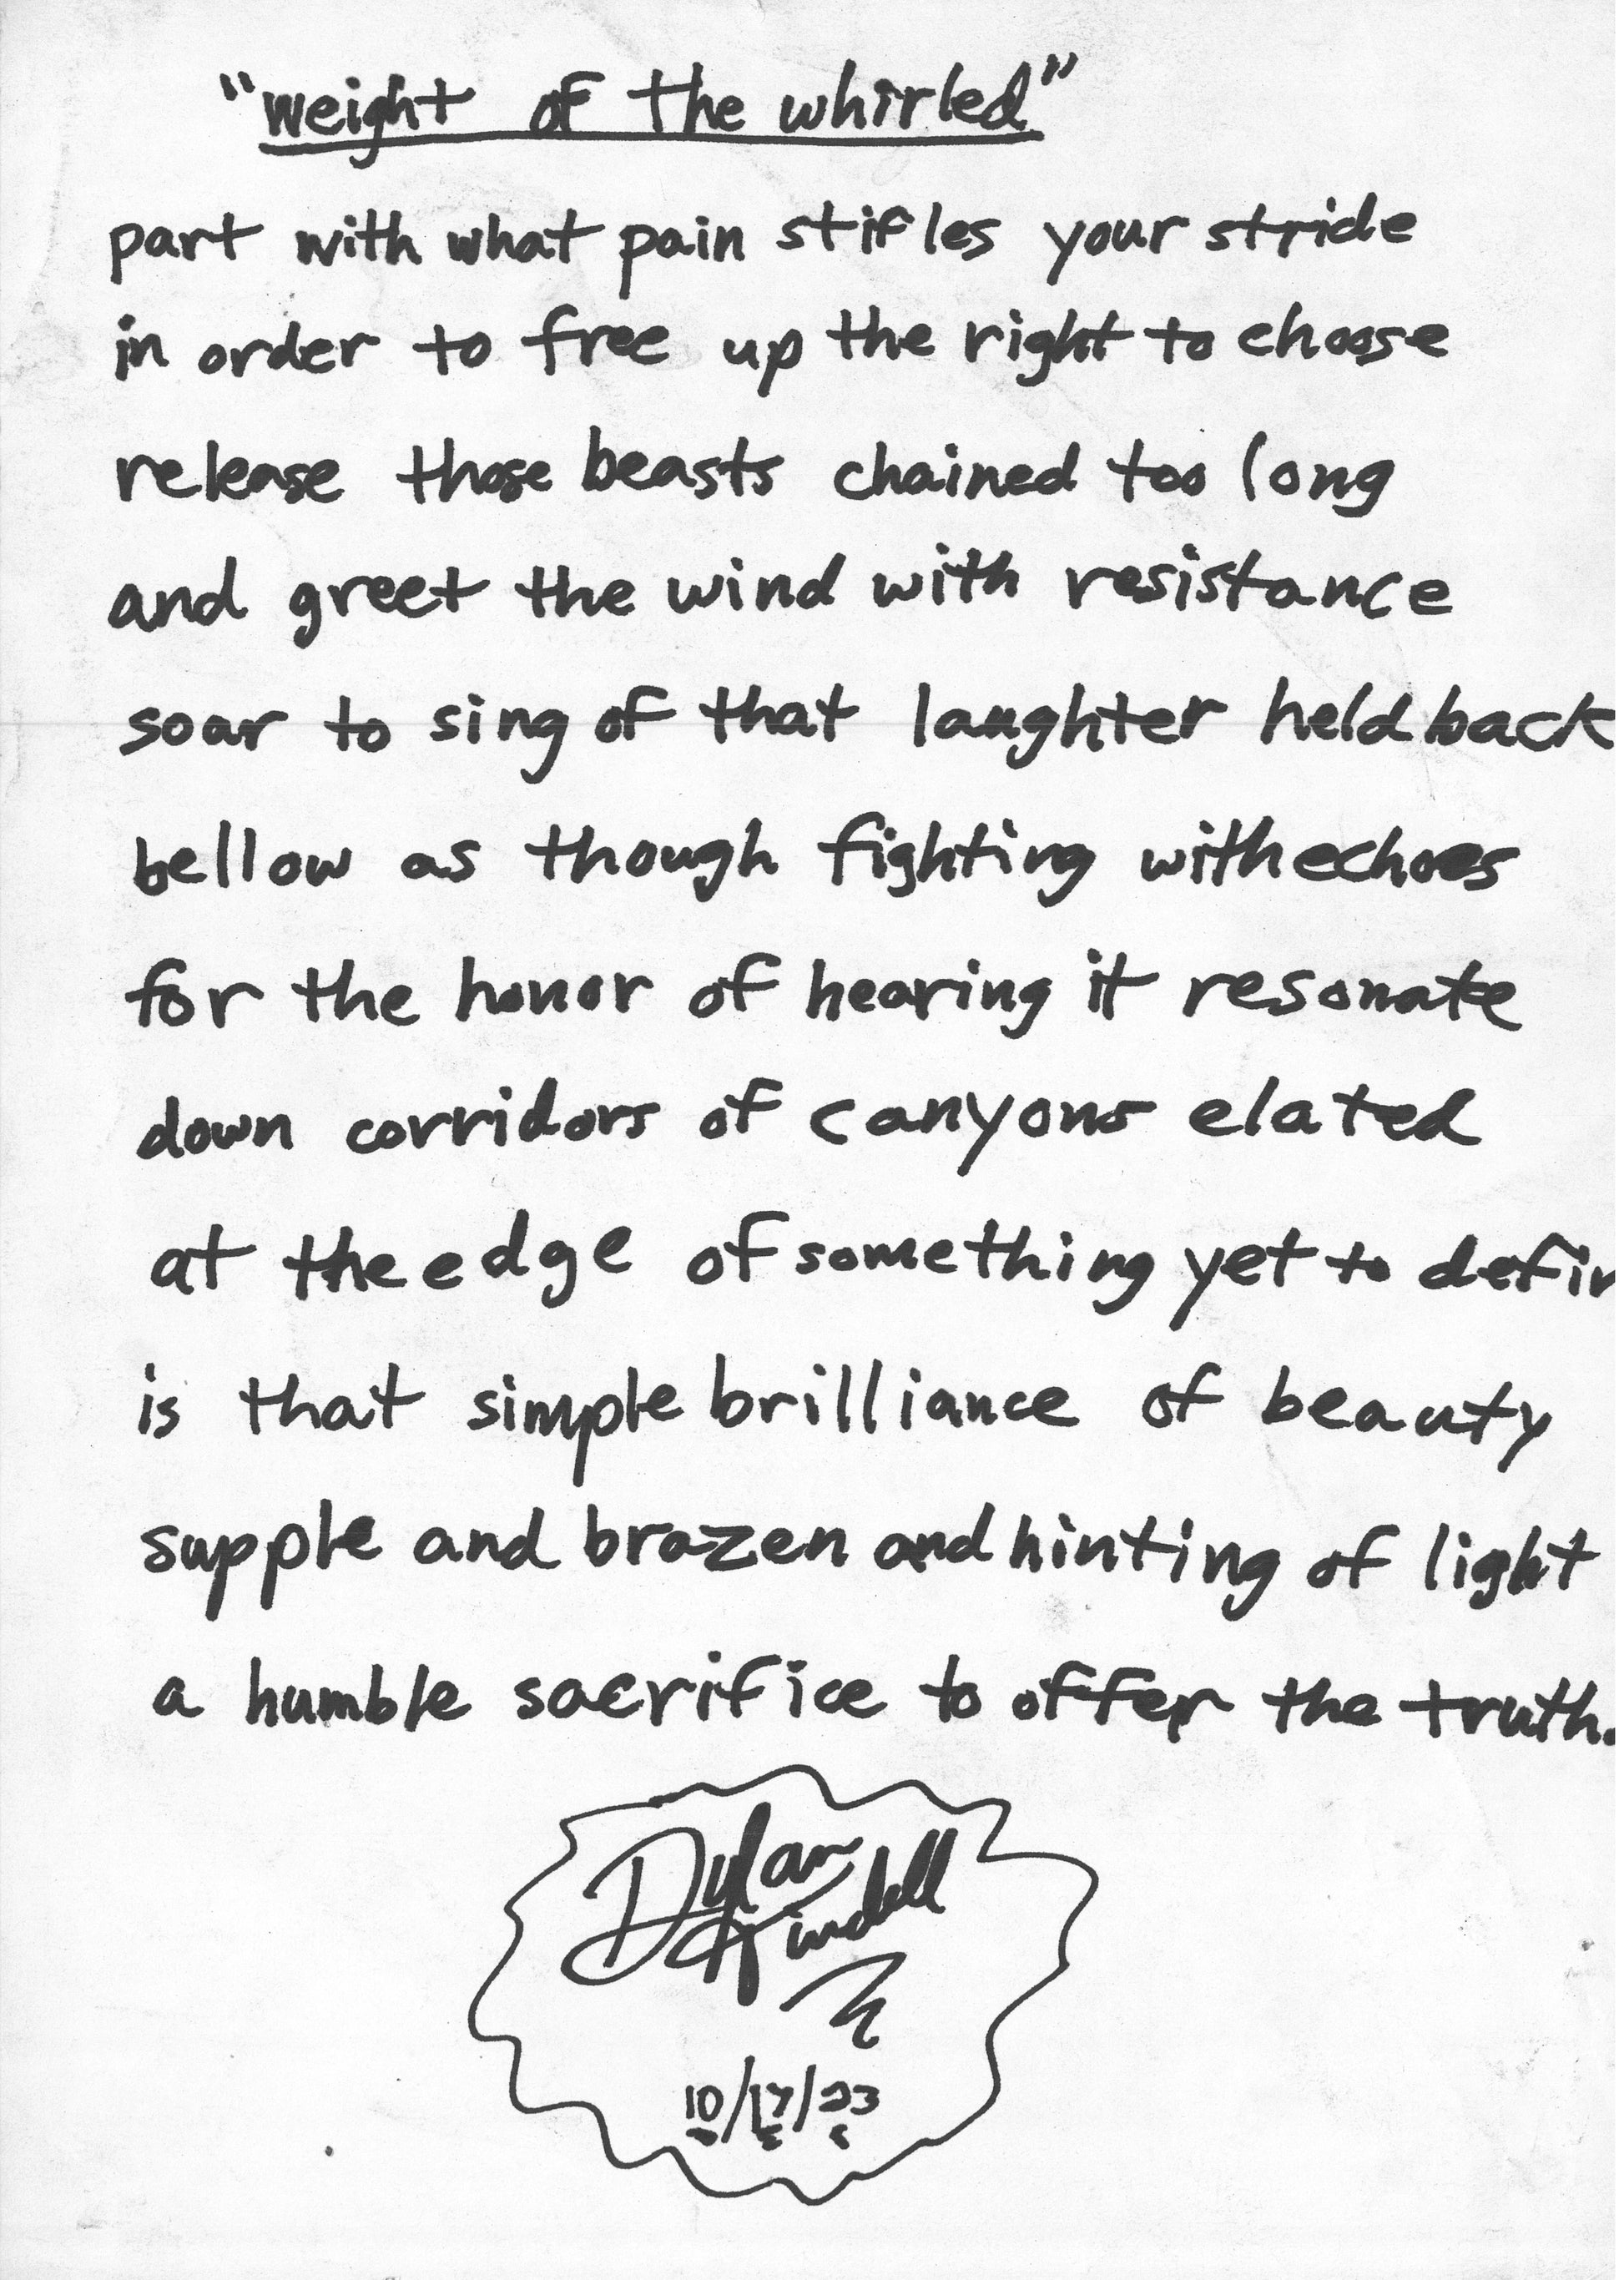 "weight of the whirled"
part with what pain stifles your stride
in order to free up the right to choose
release those beasts chained too long
and greet the wind with resistance
soar to sing of that laughter held back
bellow as though fighting with echoes
for the honor of hearing it resonate
down corridors of canyons elated
at the edge of something yet to defin
is that simple brilliance of beauty
supple and brazen and hinting of light
a humble sacrifice to offer the truth.
Dylan
10/17/23